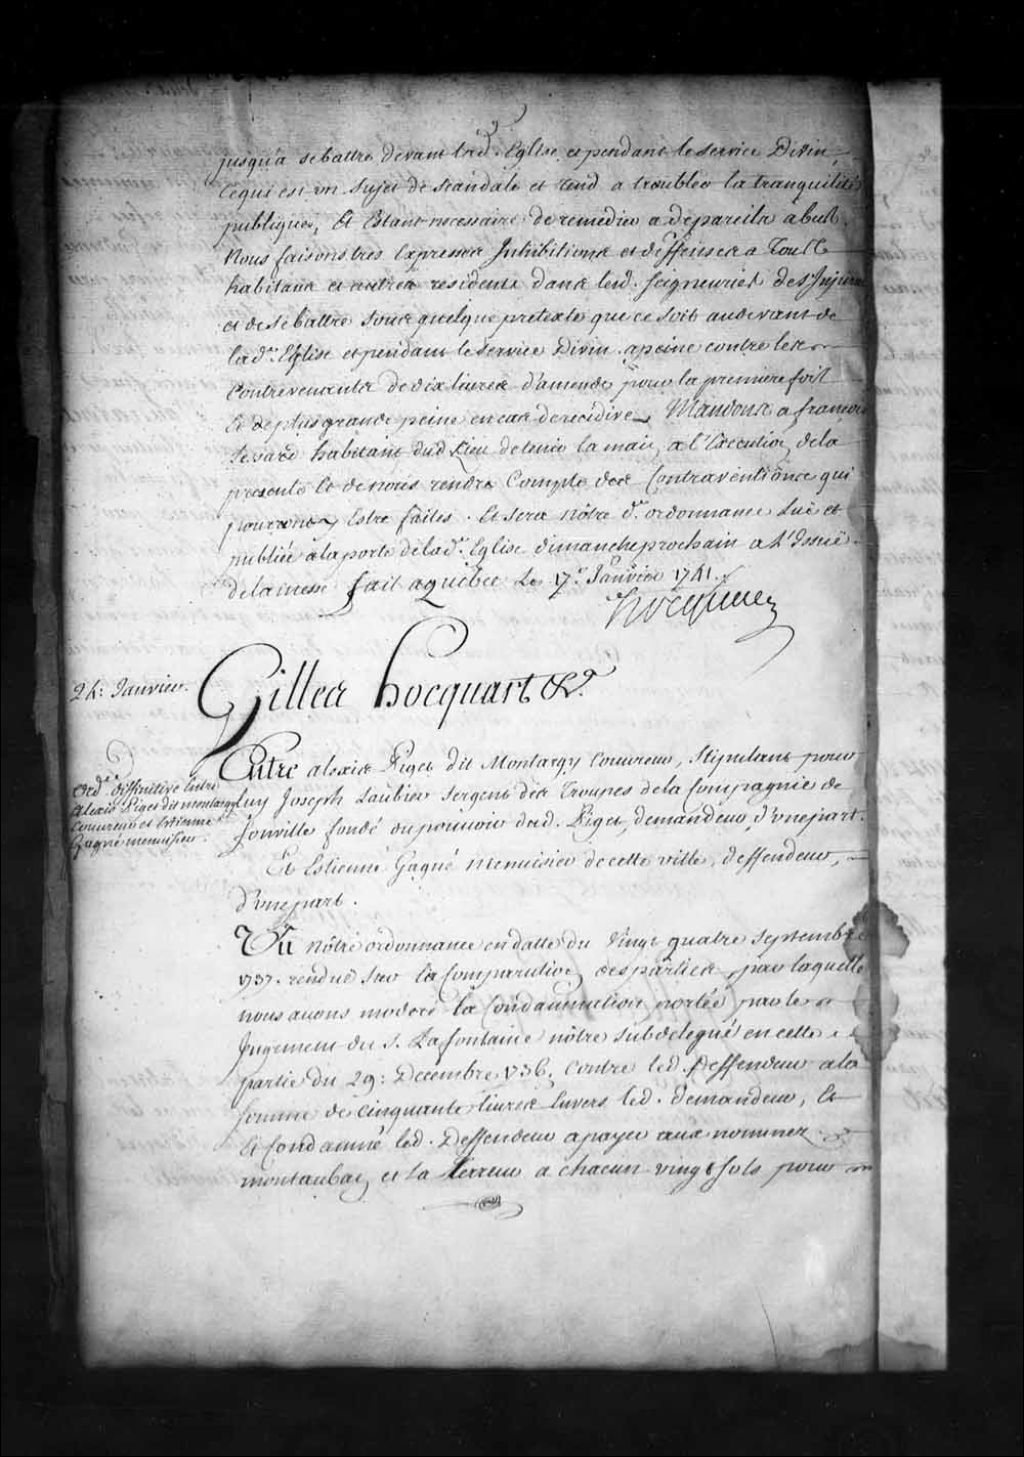 jusqu'a se battre devant lad. Eglise et pendant le service Divin,
ce qui est un sujet de scandale et tend a troubler la tranquilité
publique, Et Estant necessaire de remedier a de pareils abus.
Nous faisons tres Expresses Inhibitions et deffenses a Tous les
habitans et autres residents dans lesd. seigneuries de s'Injurier
et de se battre sous quelque pretexte que ce soit audevant de
lad.e Eglise et pendant le service Divin a peine contre les
Contrevenants de dix livres d'amende pour la premiere fois
Et de plus grande peine en cas de recidive, Mandons a françois
habitant dud Lieu de tenir la main a l'Execution de la
presente Et de nous rendre Compte des Contraventions qui
pourront Estre faites. Et sera nôtre d.e ordonnance Luë et
publiée a la porte de lad.e Eglise dimanche prochain a L'Issuë
de la messe fait a quebec Le 17.e Janvier 1741.
Hocquart
24: Janvier.
Gilles hocquart &c.a
Ord.ce deffinitive Entre
Alexis Piget dit montargy
Couvreur et Estienne
Gagné menuisier.
Entre alexis Piget dit Montargy Couvreur, Stipulant pour
luy Joseph Laubier Sergent des Troupes de la Compagnie de
Jonville fondé du pouvoir dud. Piget, demandeur, d'une part.
Et Estienne Gagné Menuisier de cette ville, deffendeur,
d'une part.
Vu nôtre ordonnance en datte du Vingt quatre Septembre
1737. renduë sur la Comparution des parties, par laquelle
nous avons moderé la Condamnation portée par le
Jugement du S. Lafontaine nôtre subdelegué en cette
partie du 29: Decembre 1736. Contre led. Deffendeur a la
somme de cinquante livres Envers led. demandeur, Et
Et Condamné led. Deffendeur a payer aux nommez
montauban et La Terreur a chacun vingt sols pour